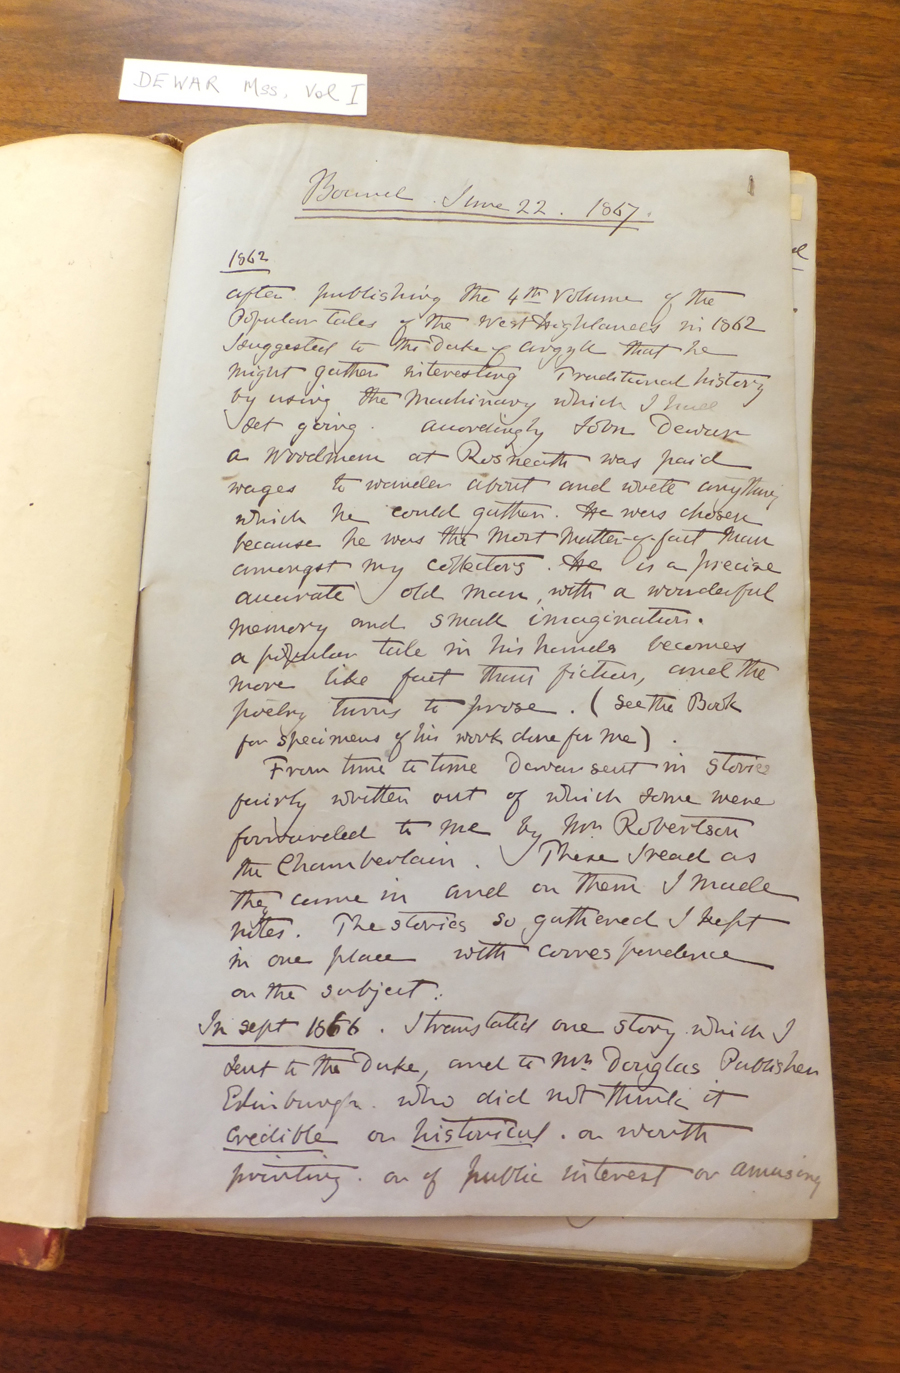 DEWAR Mss. Vol I
1
June 22. 1867.
1862
after publishing the 4th Volume of the
Popular tales of the West Highlands in 1862
I suggested to the Duke of Argyll that he
might gather interesting Traditional history
by using the Machinary which I had
set going. accordingly John Dewar
a Woodman at Rosneath was paid
wages to wander about and write anything
which he could gather. He was chosen
because he was the most matter-of-fact man
amongst my collectors. He is a precise
accurate old man, with a wonderful
memory and small imagination.
a popular tale in his hands becomes
more like fact than fiction, and the
poetry turns to prose. (see the Book
for specimens of his work done for me).
From time to time Dewar sent in stories
fairly written out of which some were
forwarded to me by Mr Robertson
the Chamberlain. These I read as
they came in and on them I made
notes. The stories so gathered I kept
in one place with correspondence
on the subject.
In sept 1866. I translated one story which I
sent to the Duke, and to Mr Douglas Publisher
Edinburgh. who did not think it
credible or historical. or worth
printing. or of public interest or amusing